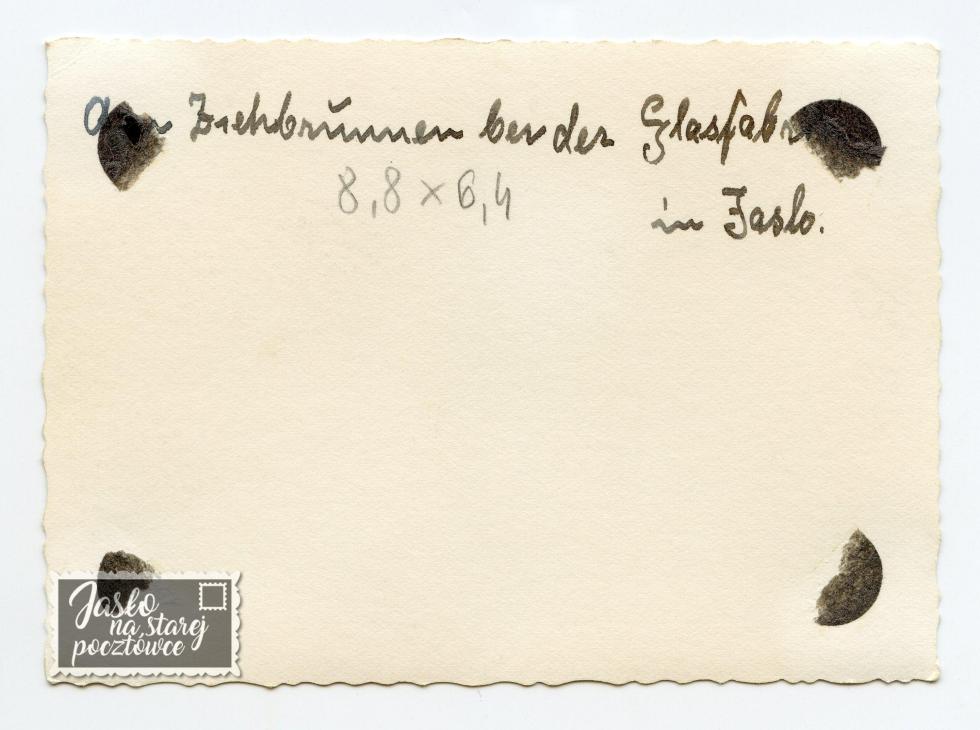 Am Ziehbrŭnnen bei der Glasfabr
8,8 × 6,4
in Jaslo.
Jasło
na starej
pocztówce